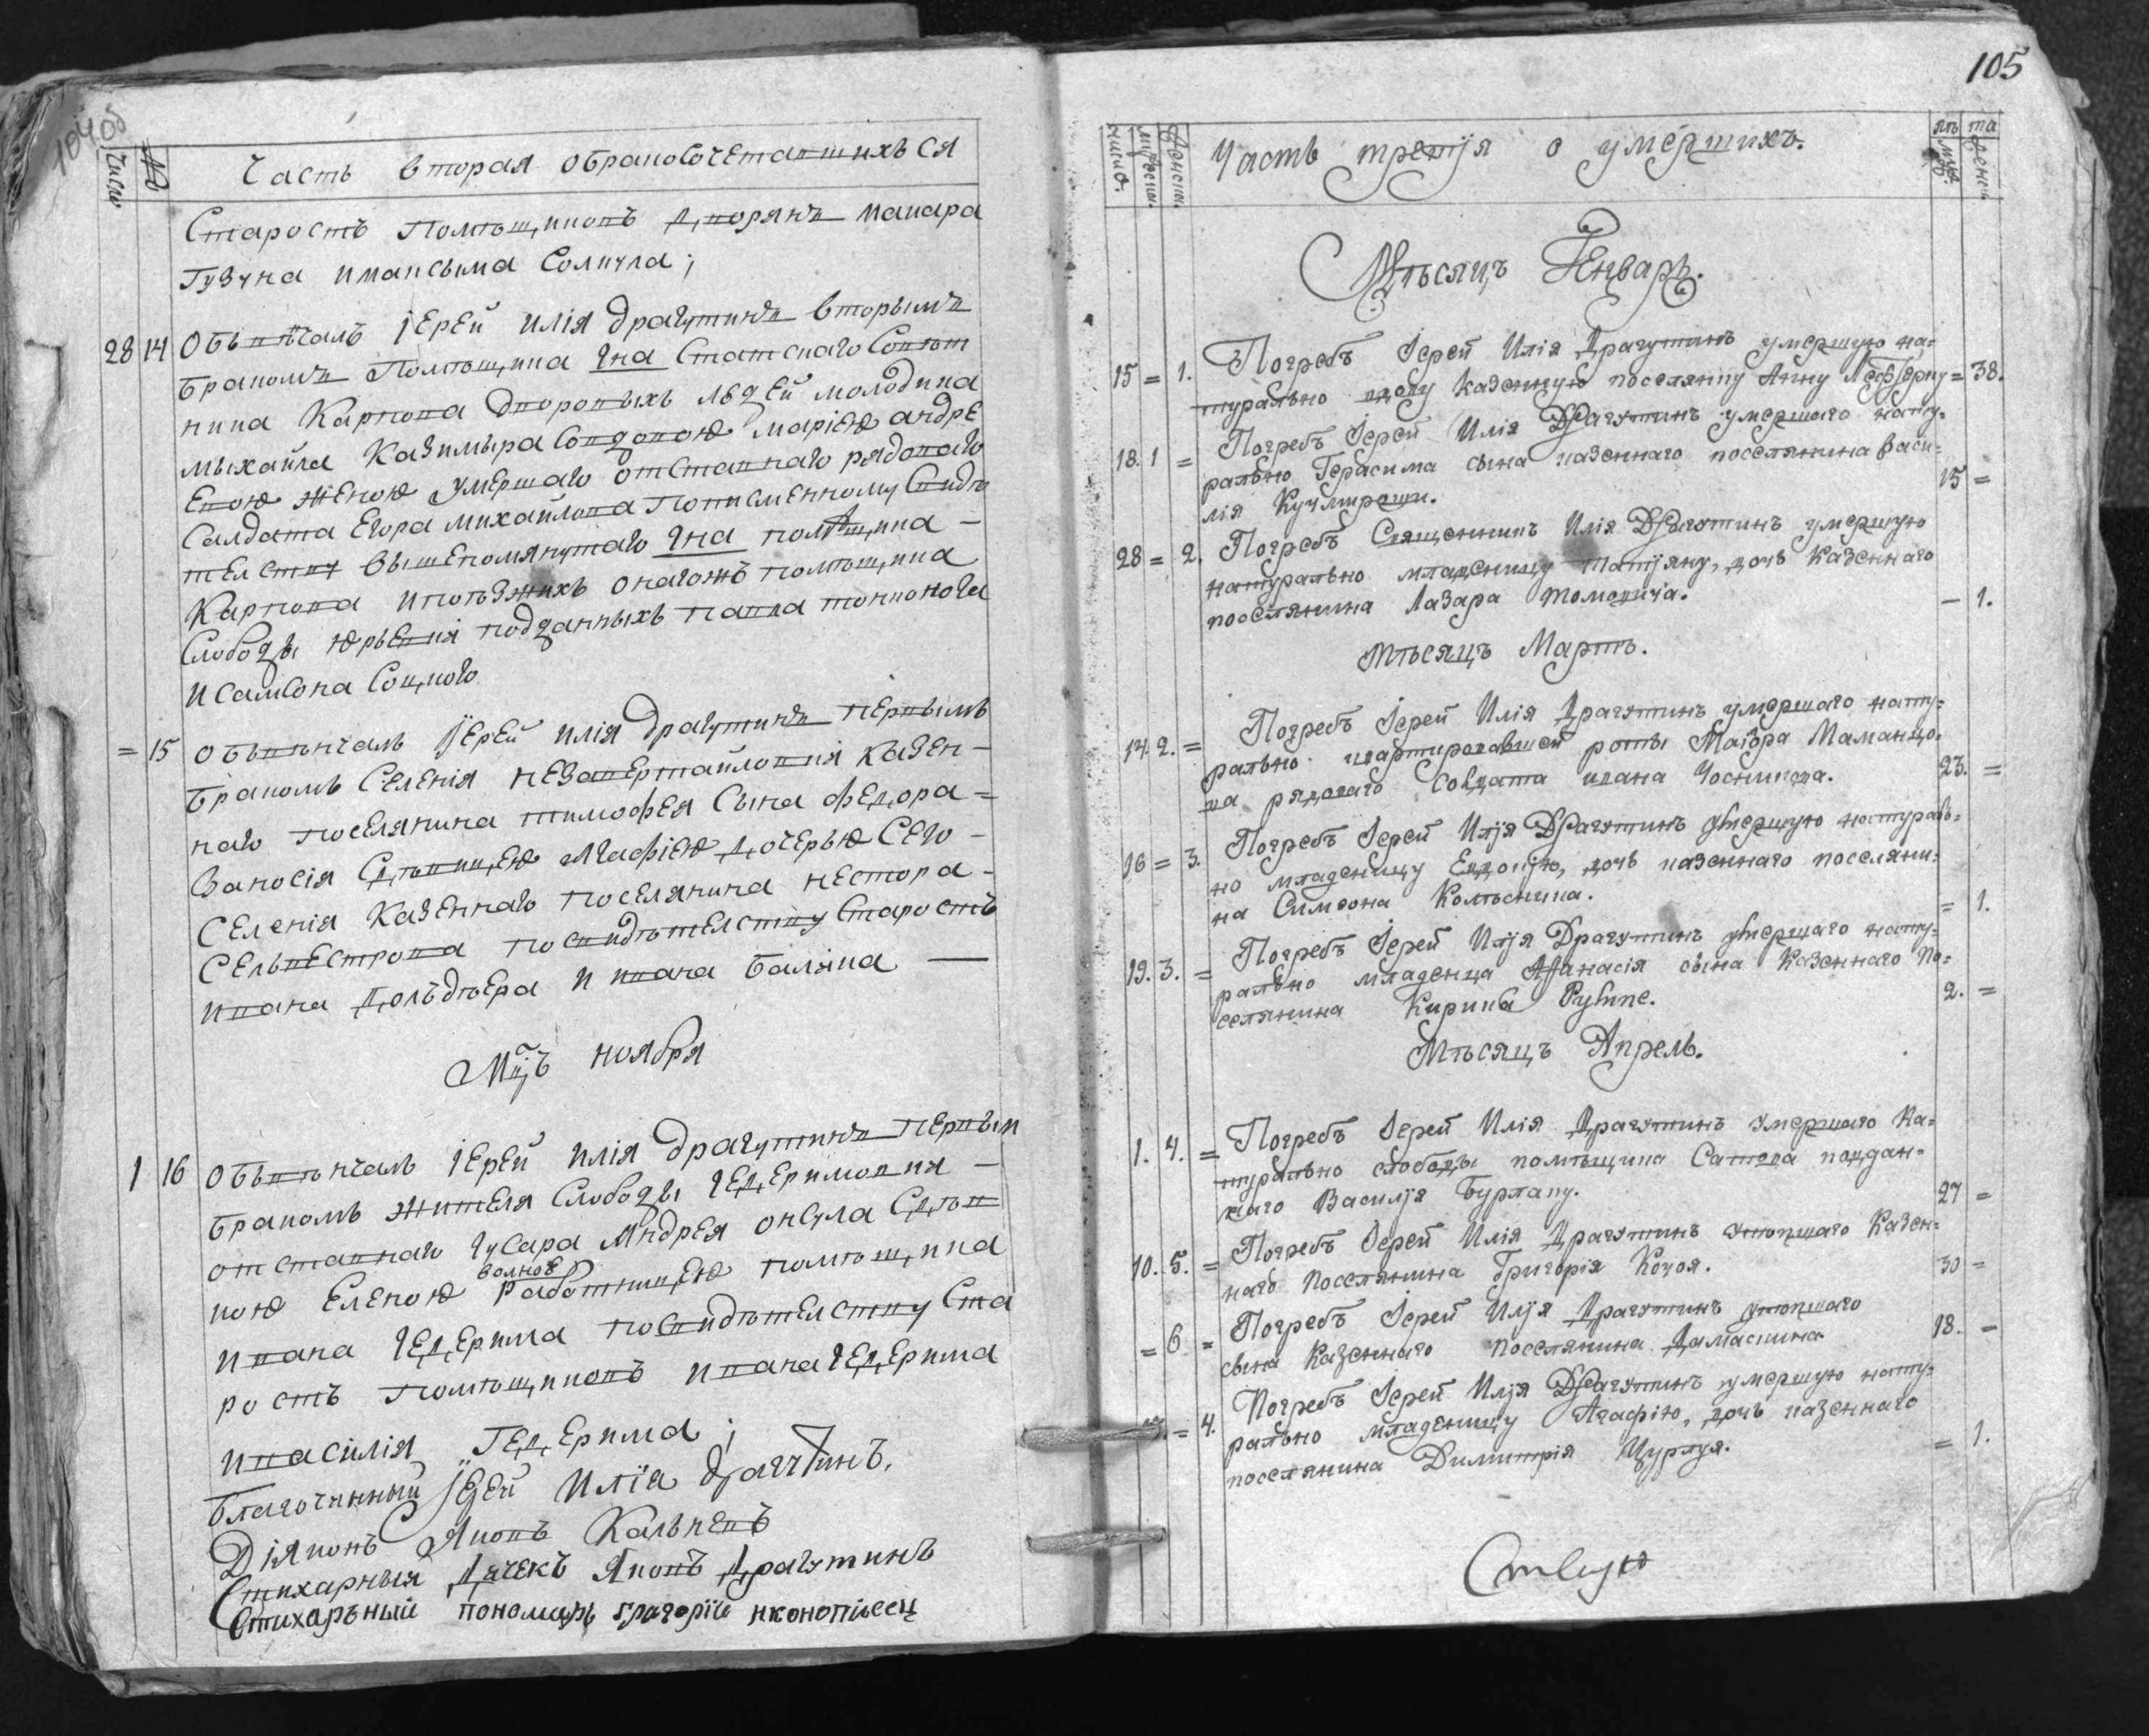 104об
число
№
Часть вторая обракосочетавшихъся
Старостъ помѣщиковъ дворянъ макара
Гузуна имаксыма Соличла;
28 14 Обвѣнчалъ іерей илія драгутинъ вторымъ
бракомъ помѣщика гна Статскаго Совѣт
ника Карпова дворовыхъ людей молодика
мыхайла Казимыра Совдовою маріею андре
евою женою умершаго отставнаго рядоваго
Салдата Егора михайлова пописменному Свидѣ
телству вышепомянутаго гна помѣщика
Карпова ипоѣзжихъ онагожъ помѣщика
Слободы юрьевкі подданныхъ павла тонконога
исамсона Соцкого
= 15 обвѣнчалъ іерей илія драгутинъ первымъ
бракомъ Селенія незавертайловкі казен-
наго поселянина тимофея Сына федора=
Заносія Сдѣвицею Агафіею дочерью Сего-
Селенія Казеннаго поселянина нестора-
Сельвестрова посвидѣтелству Старостъ
ивана дольдѣера и ивана баляна —
Мцъ ноября
1 16 обвѣнчалъ іерей илія драгутинъ первым
бракомъ жителя Слободы гедеримовки —
отставнаго гусара Андрея онсула Сдѣв
кою Еленою работницею помѣщика
волною
ивана гедерима посвидѣтелству Ста
ростъ помѣщиковъ ивана гедерима
ивасілія гедерима;
благочинный іерей Илїя драгутинъ.
Діяконъ Яковъ Кальневъ
Стихарный дячекъ Яковъ драгутинъ
Стихарьный пономарь григорій иконописец
105
число.
мужеска.
женска.
Часть третїя о умершихъ.
лѣ та
муж. женск.
Мѣсяцъ Генварь.
15 = 1. Погребъ Іерей Илія Драгутинъ умершую на=
турально вдову казенную поселянку Анну = 38.
18. 1 = Погребъ Іерей Илія Драгутинъ умершаго нату=
рально Герасима сына казеннаго поселянина Васи=
лія Кучмироши. 15 =
28 = 2. Погребъ Священникъ Илія Драгутинъ умершую
натурально младеницу татїяну, дочь казеннаго
поселянина Лазара томовича. — 1.
Мѣсяцъ Мартъ.
14. 2. = Погребъ Іерей Илія Драгутинъ умершаго нату=
рально квартировавшей роты Маіора Маманцо=
ва рядоваго Солдата ивана Чосникова. 23. =
16 = 3. Погребъ Іерей Илїя Драгутинъ умершую натураль=
но младеницу Евдокїю, дочь казеннаго поселяни=
на Симеона Колѣсника. = 1.
19. 3. = Погребъ Іерей Илїя Драгутинъ умершаго нату=
рально младенца Афанасія сына казеннаго по=
селянина Кирила 2. =
Мѣсяцъ Апрель.
1. 4. = Погребъ Іерей Илія Драгутинъ умершаго на=
турально слободы помѣщика Сатова поддан=
наго Василїя Бурлаку. 27 =
10. 5. = Погребъ Іерей Илія Драгутинъ утопшаго казен=
наго поселянина Григорія Коцоя. 30 =
= 6 = Погребъ Іерей Илїя Драгутинъ утопшаго
сына казеннаго поселянина Дамаскина 18. =
= 4. Погребъ Іерей Илїя Драгутинъ умершую нату=
рально младеницу Агафію, дочь казеннаго
поселянина Димитрія Цурлуя. = 1.